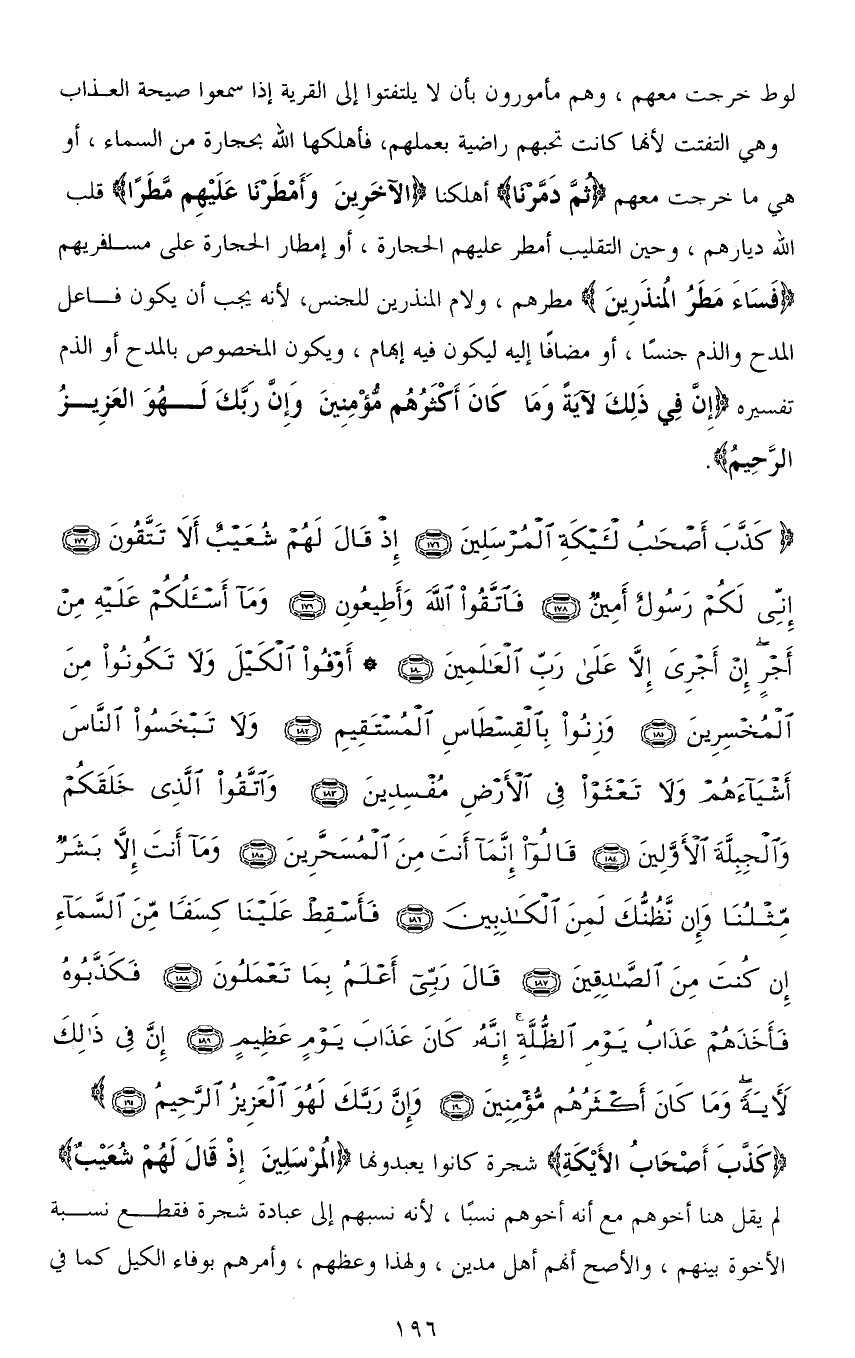 لوط خرجت معهم ، وهم مأمورون بأن لا يلتفتوا إلى القرية إذا سمعوا صيحة العـذاب
وهي التفتت لأنها كانت تحبهم راضية بعملهم، فأهلكها الله بحجارة من السماء ، أو
هي ما خرجت معهم ﴿ثُمَّ دَمَّرْنَا﴾ أهلكنا ﴿الآخَرِينَ وَأَمْطَرْنَا عَلَيْهِم مَّطَرًا﴾ قلب
الله ديارهم ، وحين التقليب أمطر عليهم الحجارة ، أو إمطار الحجارة على مسـافريهم
﴿فَسَاءَ مَطَرُ الْمُنذَرِينَ ﴾ مطرهم ، ولام المنذرين للجنس، لأنه يجب أن يكون فـاعل
المدح والذم جنسًا ، أو مضافًا إليه ليكون فيه إبهام ، ويكون المخصوص بالمدح أو الذم
تفسيره ﴿إِنَّ فِي ذَلِكَ لآيَةً وَمَا كَانَ أَكْثَرُهُم مُّؤْمِنِينَ وَإِنَّ رَبَّكَ لَـهُوَ العَزِيـزُ
الرَّحِيمُ﴾.
﴿ كَذَّبَ أَصْحَٰبُ لْـَٔيْكَةِ ٱلْمُرْسَلِينَ ١٧٦ إِذْ قَالَ لَهُمْ شُعَيْبٌ أَلَا تَتَّقُونَ ١٧٧
إِنِّى لَكُمْ رَسُولٌ أَمِينٌ ١٧٨ فَٱتَّقُوا۟ ٱللَّهَ وَأَطِيعُونِ ١٧٩ وَمَآ أَسْـَٔلُكُمْ عَلَيْهِ مِنْ
أَجْرٍ ۖ إِنْ أَجْرِىَ إِلَّا عَلَىٰ رَبِّ ٱلْعَٰلَمِينَ ١٨٠ * أَوْفُوا۟ ٱلْكَيْلَ وَلَا تَكُونُوا۟ مِنَ
ٱلْمُخْسِرِينَ ١٨١ وَزِنُوا۟ بِٱلْقِسْطَاسِ ٱلْمُسْتَقِيمِ ١٨٢ وَلَا تَبْخَسُوا۟ ٱلنَّاسَ
أَشْيَآءَهُمْ وَلَا تَعْثَوْا۟ فِى ٱلْأَرْضِ مُفْسِدِينَ ١٨٣ وَٱتَّقُوا۟ ٱلَّذِى خَلَقَكُمْ
وَٱلْجِبِلَّةَ ٱلْأَوَّلِينَ ١٨٤ قَالُوٓا۟ إِنَّمَآ أَنتَ مِنَ ٱلْمُسَحَّرِينَ ١٨٥ وَمَآ أَنتَ إِلَّا بَشَرٌ
مِّثْلُنَا وَإِن نَّظُنُّكَ لَمِنَ ٱلْكَٰذِبِينَ ١٨٦ فَأَسْقِطْ عَلَيْنَا كِسَفًا مِّنَ ٱلسَّمَآءِ
إِن كُنتَ مِنَ ٱلصَّٰدِقِينَ ١٨٧ قَالَ رَبِّىٓ أَعْلَمُ بِمَا تَعْمَلُونَ ١٨٨ فَكَذَّبُوهُ
فَأَخَذَهُمْ عَذَابُ يَوْمِ ٱلظُّلَّةِ ۚ إِنَّهُۥ كَانَ عَذَابَ يَوْمٍ عَظِيمٍ ١٨٩ إِنَّ فِى ذَٰلِكَ
لَـَٔايَةً ۖ وَمَا كَانَ أَكْثَرُهُم مُّؤْمِنِينَ ١٩٠ وَإِنَّ رَبَّكَ لَهُوَ ٱلْعَزِيزُ ٱلرَّحِيمُ ١٩١ ﴾
﴿كَذَّبَ أَصْحَابُ الأَيْكَةِ﴾ شجرة كانوا يعبدونها ﴿الْمُرْسَلِينَ إِذْ قَالَ لَهُمْ شُعَيْبٌ﴾
لم يقل هنا أخوهم مع أنه أخوهم نسبًا ، لأنه نسبهم إلى عبادة شجرة فقطـع نسـبة
الأخوة بينهم ، والأصح أنهم أهل مدين ، ولهذا وعظهم ، وأمرهم بوفاء الكيل كما في
١٩٦